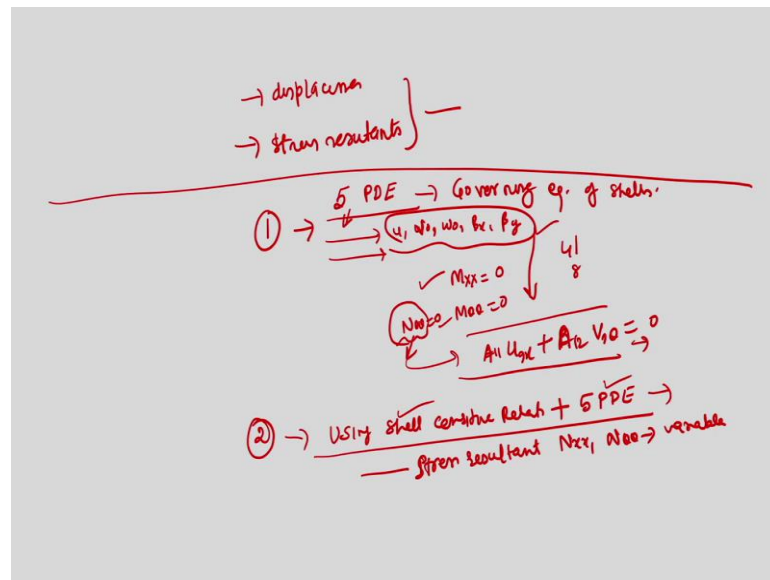 → displacemen
→ stress resultants } —
① → 5 PDE → Governing eq. of shells.
→ u, v0, w0, βx, βy
→ 4|
8
✓ Mxx = 0
Nθθ=0 Mθθ = 0
A11 U,x + A12 V,θ = 0 →
② → Using shell Relat + 5 PDE →
— Stress resultant Nxx, Nθθ → variable